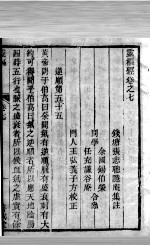 靈樞經卷之七
錢塘張志聰隱庵集註
同學
余國錫伯榮
任充謙谷菴
合參
門人王弘義子方校正
逆順第五十五
黃帝問于伯高曰余聞氣有逆順脈有盛衰刺有大
約可得聞乎伯高曰氣之逆順者所以應天地陰陽
四時五行也脈之盛衰者所以候血氣之虛實有餘